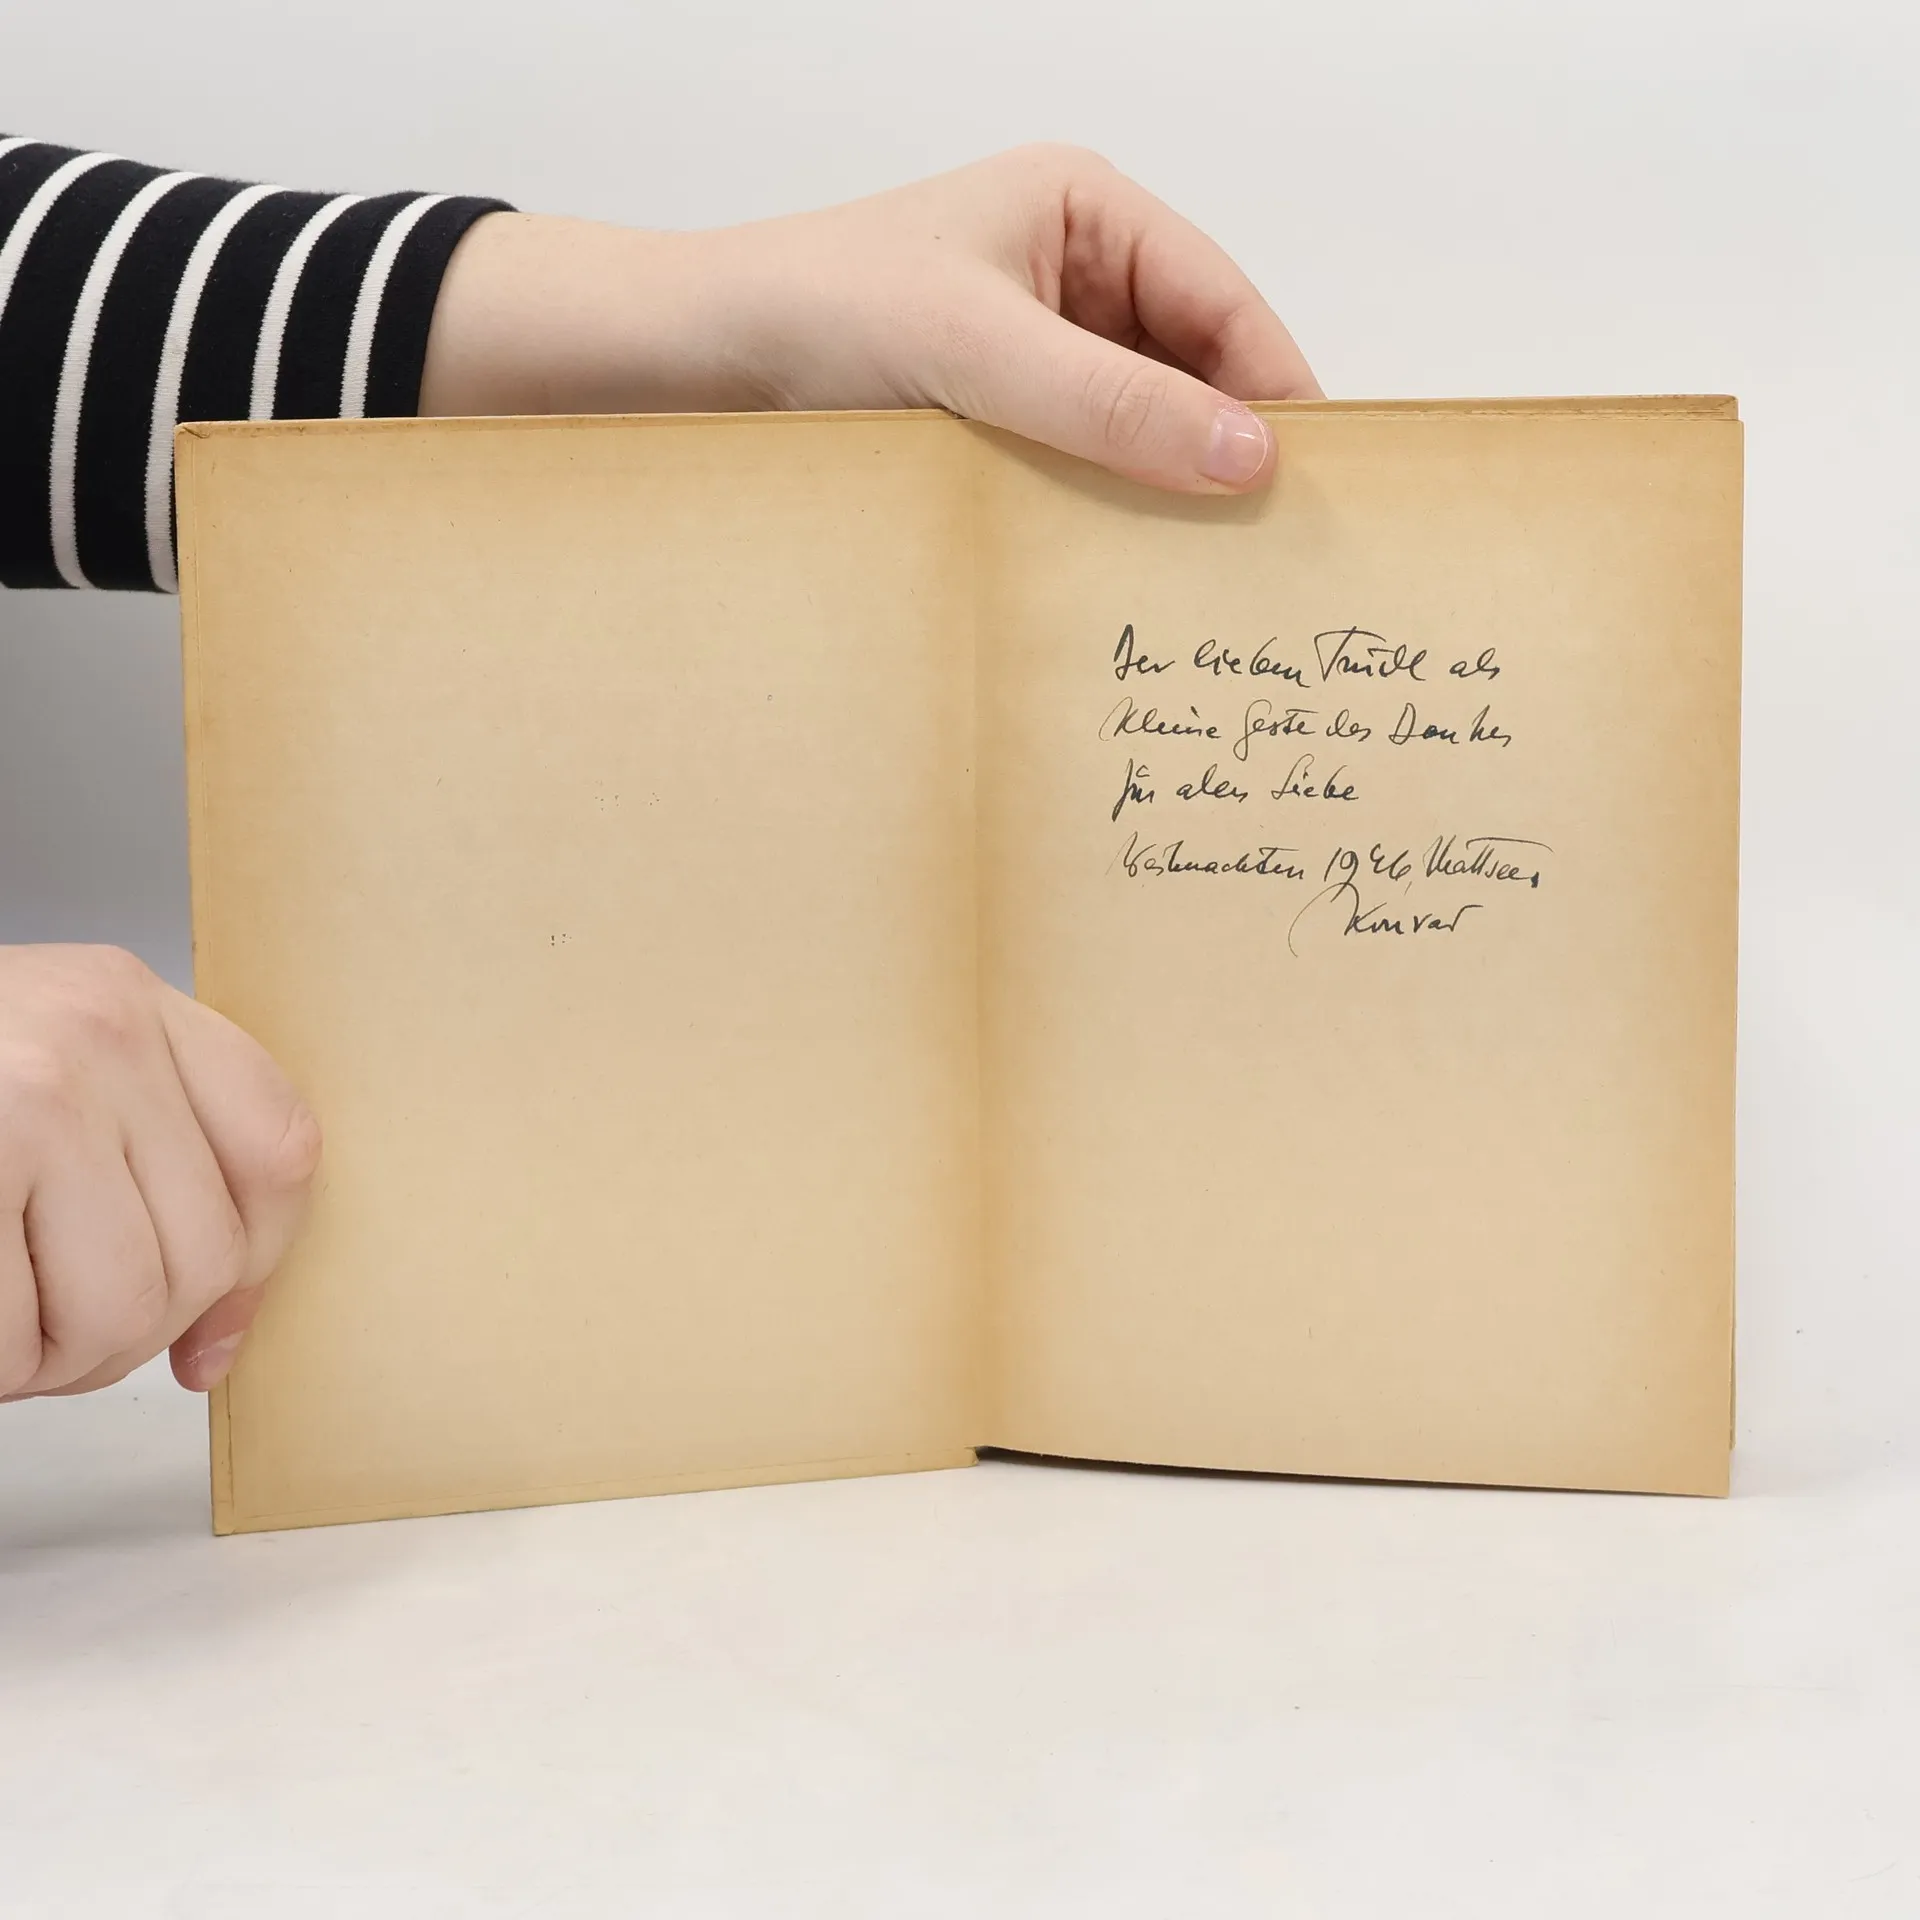 Der lieben Trudl als
kleine Geste des Dankes
für alle Liebe
Weihnachten 1946, Mattsee.
Konrad